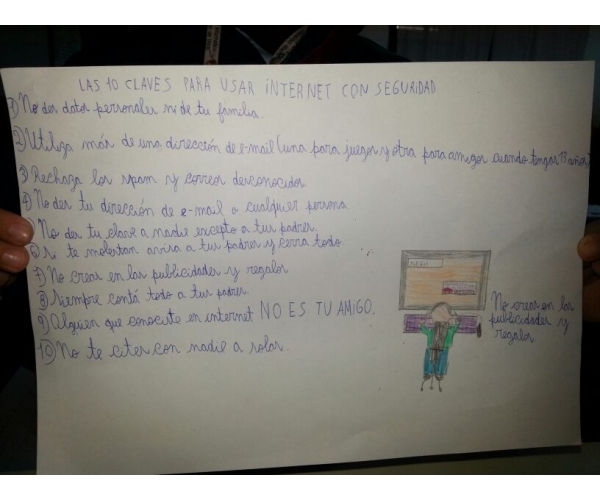 LAS 10 CLAVES PARA USAR INTERNET CON SEGURIDAD
1) No des datos personales ni de tu familia.
2) Utiliza más de una dirección de e-mail (una para juegos y otra para amigos cuando tengas 13 años)
3) Rechaza los spam y correos desconocidos
4) No des tu dirección de e-mail a cualquier persona
No des tu clave a nadie excepto a tus padres.
6) Si te molestan avisa a tus padres y cerra todo
7) No creas en las publicidades y regalos
8) Siempre contá todo a tus padres.
9) Alguien que conociste en internet NO ES TU AMIGO.
10) No te cites con nadie a solas.
No creas en las
publicidades y
regalos